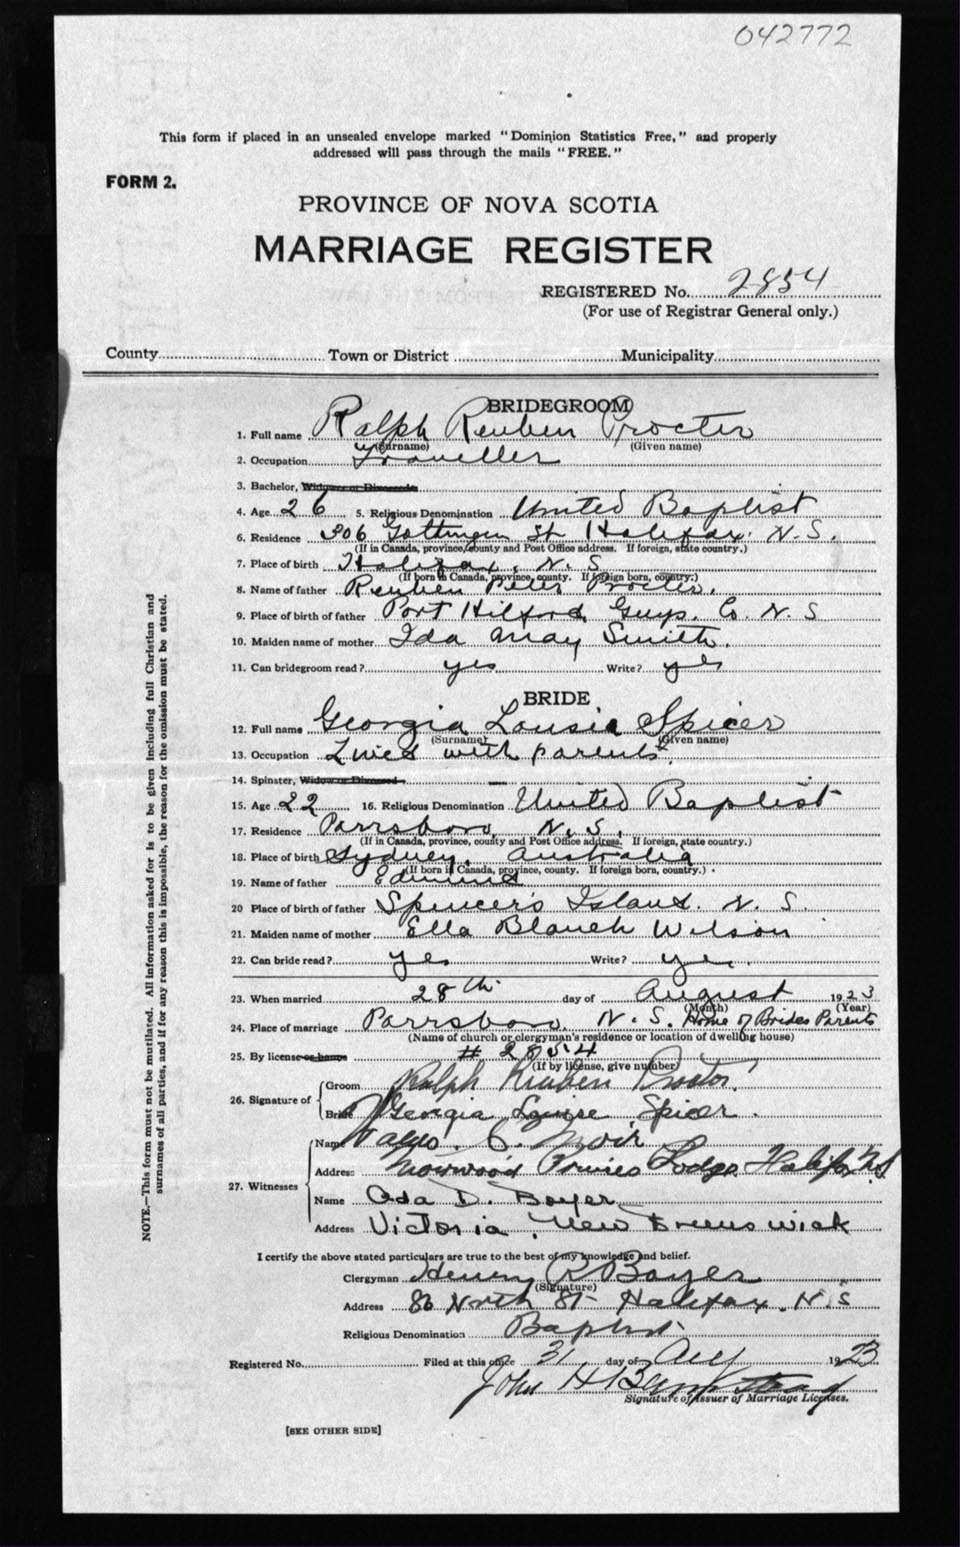 042772
This form if placed in an unsealed envelope marked "Dominion Statistics Free," and properly
addressed will pass through the mails "FREE."
FORM 2.
PROVINCE OF NOVA SCOTIA
MARRIAGE REGISTER
REGISTERED No. 2854
(For use of Registrar General only.)
County Town or District Municipality
BRIDEGROOM
1. Full name Ralph Reuben Procter
(Surname) (Given name)
2. Occupation Traveller
3. Bachelor, Widower or Divorced
4. Age 26 5. Religious Denomination United Baptist
6. Residence 306 Gottingen St. Halifax. N.S.
(If in Canada, province, county and Post Office address. If foreign, state country.)
7. Place of birth Halifax, N.S.
(If born in Canada, province, county. If foreign born, country.)
8. Name of father Reuben Peter Procter.
9. Place of birth of father Port Hilford, Guys. Co. N.S
10. Maiden name of mother Ida May Smith.
11. Can bridegroom read? yes Write? yes
BRIDE
12. Full name Georgia Lousie Spicer
(Surname) (Given name)
13. Occupation Lives with parents.
14. Spinster, Widow or Divorced
15. Age 22 16. Religious Denomination United Baptist
17. Residence Parrsboro, N.S.
(If in Canada, province, county and Post Office address. If foreign, state country.)
18. Place of birth Sydney, Australia
(If born in Canada, province, county. If foreign born, country.)
19. Name of father Edmund
20 Place of birth of father Spencer's Island. N.S.
21. Maiden name of mother Ella Blanch Wilson
22. Can bride read? yes Write? yes.
23. When married 28th day of August 1923
(Month) (Year)
24. Place of marriage Parrsboro, N.S. Home of Brides Parents
(Name of church or clergyman's residence or location of dwelling house)
25. By license or banns # 2854
(If by license, give number)
26. Signature of Groom Ralph Reuben Proctor
Bride Georgia Louise Spicer.
27. Witnesses Name C. Moir
Address Norwood Lodge Halifax N.S
Name Ada D. Boyer
Address Victoria, New Brunswick
I certify the above stated particulars are true to the best of my knowledge and belief.
Clergyman Henry R Boyer
(Signature)
Address 86 North St- Halifax. N.S
Religious Denomination Baptist
Registered No. Filed at this office 31 day of Aug 1923
John H
Signature of Issuer of Marriage Licenses.
[SEE OTHER SIDE]
NOTE.—This form must not be mutilated. All information asked for is to be given including full Christian and
surnames of all parties, and if for any reason this is impossible, the reason for the omission must be stated.